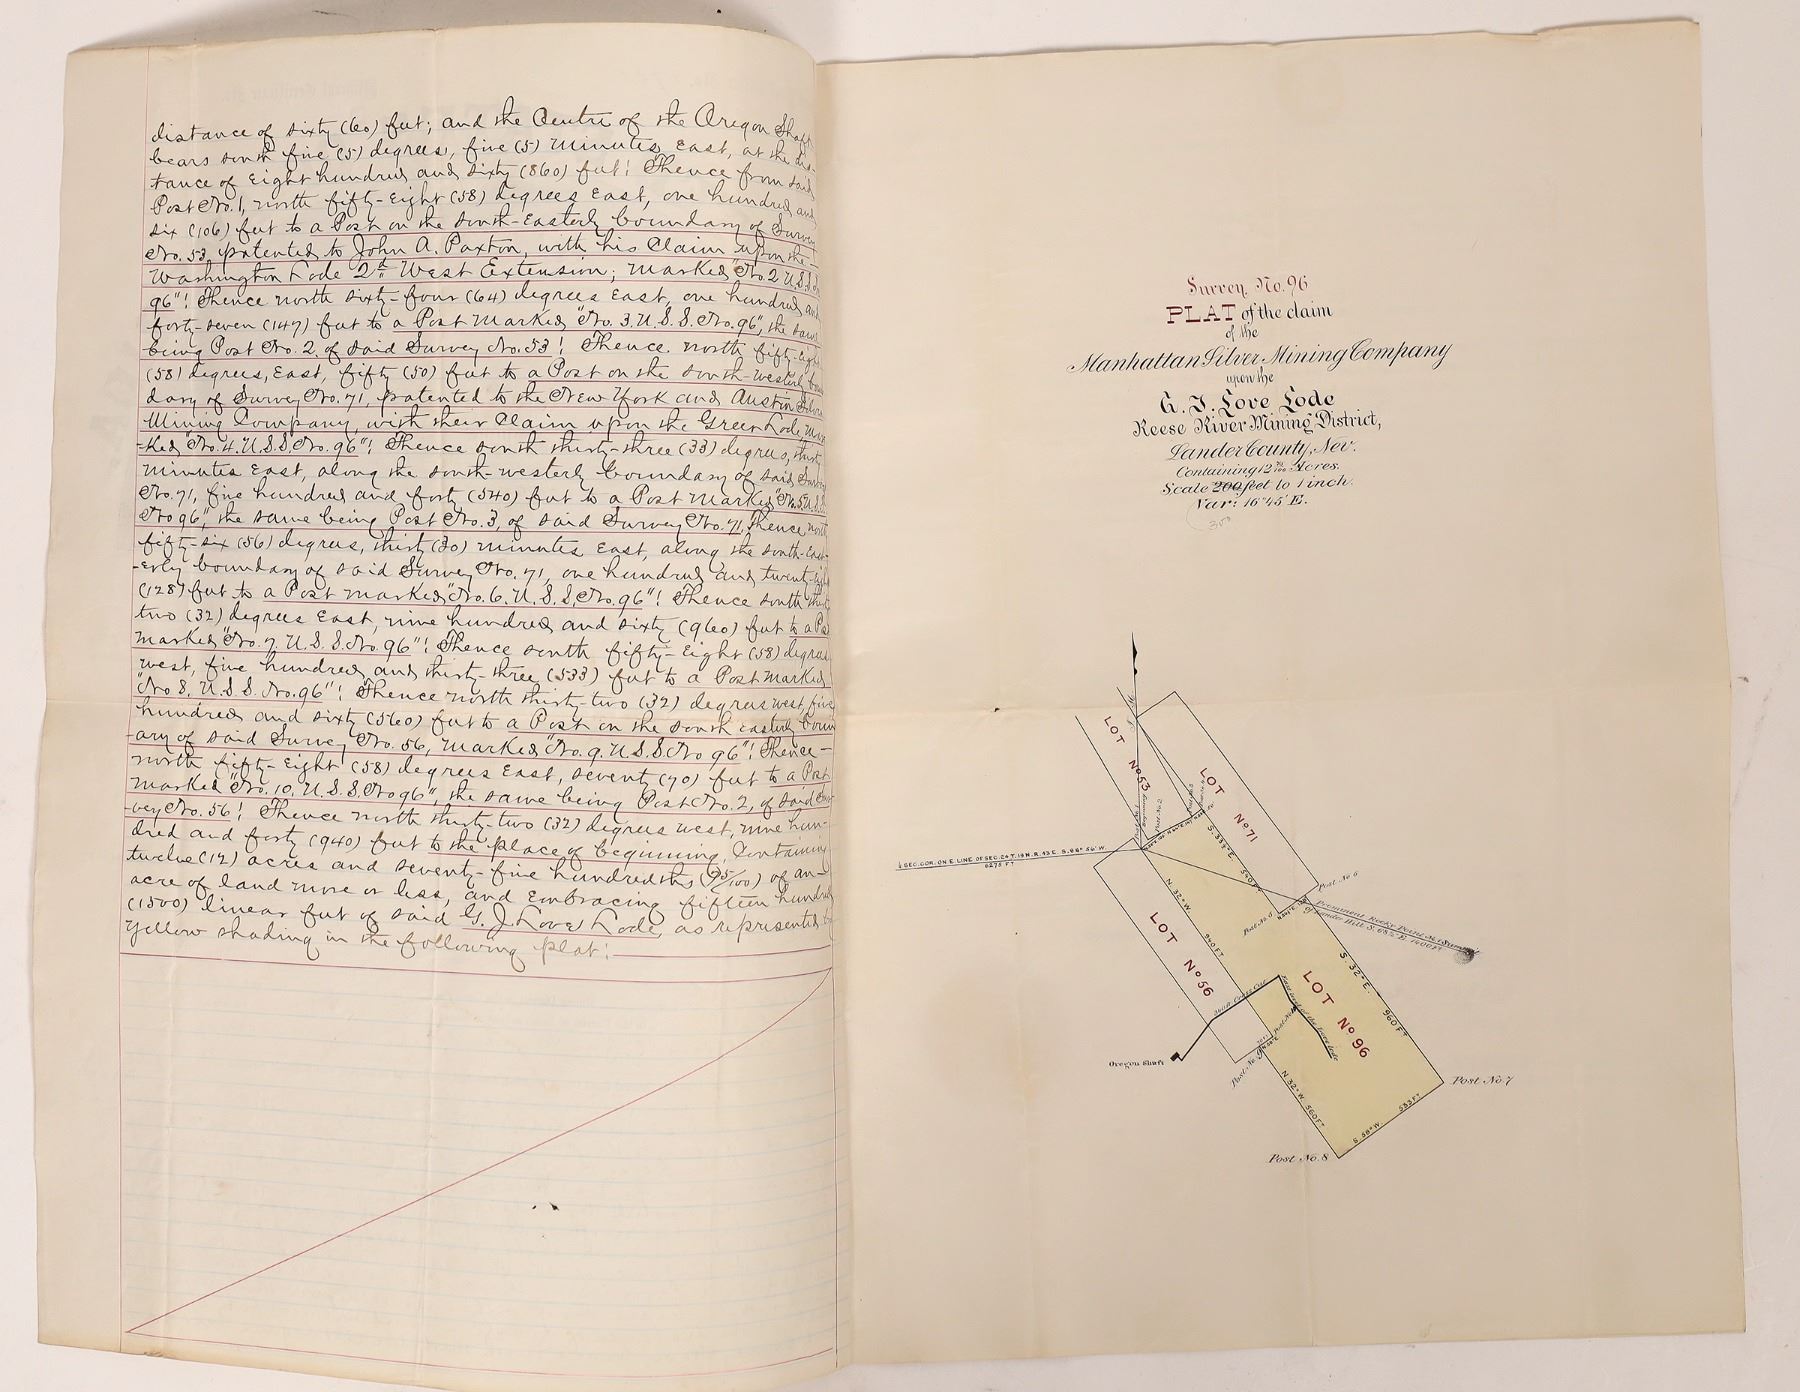 distance of sixty (60) feet; and the Centre of the Oregon Shaft
bears south five (5) degrees, five (5) minutes East, at the dis-
tance of Eight hundred and sixty (860) feet! Thence from said
Post No. 1, north fifty-Eight (58) degrees East, one hundred and
six (106) feet to a Post on the south-Easterly boundary of Survey
No. 53, patented to John A. Paxton, with his Claim upon the
Washington Lode 2d West Extension; marked "No. 2 U.S.S. No.
96"! Thence north sixty-four (64) degrees East, one hundred and
forty-seven (147) feet to a Post marked "No. 3. U.S.S. No. 96", the same
being Post No. 2, of said Survey No. 53! Thence north fifty-eight
(58) degrees, East, fifty (50) feet to a Post on the south-westerly boun-
dary of Survey No. 71, patented to the New York and Austin Silver
Mining Company, with their Claim upon the Green Lode, mar-
-ked "No. 4. U.S.S. No. 96"! Thence south thirty-three (33) degrees, thirty
minutes East, along the south-westerly boundary of said Survey
No. 71, five hundred and forty (540) feet to a Post marked "No. 5. U.S.S.
No 96", the same being Post No. 3, of said Survey No. 71, Thence north
fifty-six (56) degrees, thirty (30) minutes East, along the south-East-
-erly boundary of said Survey No. 71, one hundred and twenty-eight
(128) feet to a Post marked "No. 6. U.S.S. No. 96"! Thence south thirty
two (32) degrees East, nine hundred and sixty (960) feet to a Post
marked "No. 7. U.S.S. No. 96"! Thence south fifty-Eight (58) degrees
west, five hundred and thirty-three (533) feet to a Post marked
"No 8. U.S.S. No. 96"! Thence north thirty-two (32) degrees west, five
hundred and sixty (560) feet to a Post on the south easterly boun
-ary of said Survey No. 56, marked "No. 9. U.S.S. No 96"! Thence-
north fifty-Eight (58) degrees East, seventy (70) feet to a Post
marked "No. 10. U.S.S. No 96", the same being Post No. 2, of said Sur-
-vey No. 56! Thence north thirty-two (32) degrees west, nine hun-
dred and forty (940) feet to the place of beginning, Containing
twelve (12) acres and seventy-five hundredths (75/100) of an-
acre of land more or less, and Embracing fifteen hundred
(1500) linear feet of said G. J. Love Lode, as represented by
yellow shading in the following plat:
Survey No. 96
PLAT of the claim
of the
Manhattan Silver Mining Company
upon the
G. J. Love Lode
Reese River Mining District,
Lander County, Nev.
Containing 12 75/100 Acres.
Scale 200 feet to 1 inch.
Var: 16° 45' E.
300
LOT No 53
LOT No 71
¼ SEC. COR. ON E. LINE OF SEC. 24 T. 19 N. R. 43 E. S. 86° 56' W.
6275 FT
S. 33½° E.
540 FT
Post No 6
Prominent Rocky Point on Summit
of Lander Hill S. 68½° E. 1400 FT
N. 32° W.
940 FT
Post No. 5
LOT No 56
S. 32° E.
960 FT
LOT No 96
Oregon Shaft
Post No. 9
N. 32° W. 560 FT
Post No 7
533 FT
S. 58° W
Post No. 8